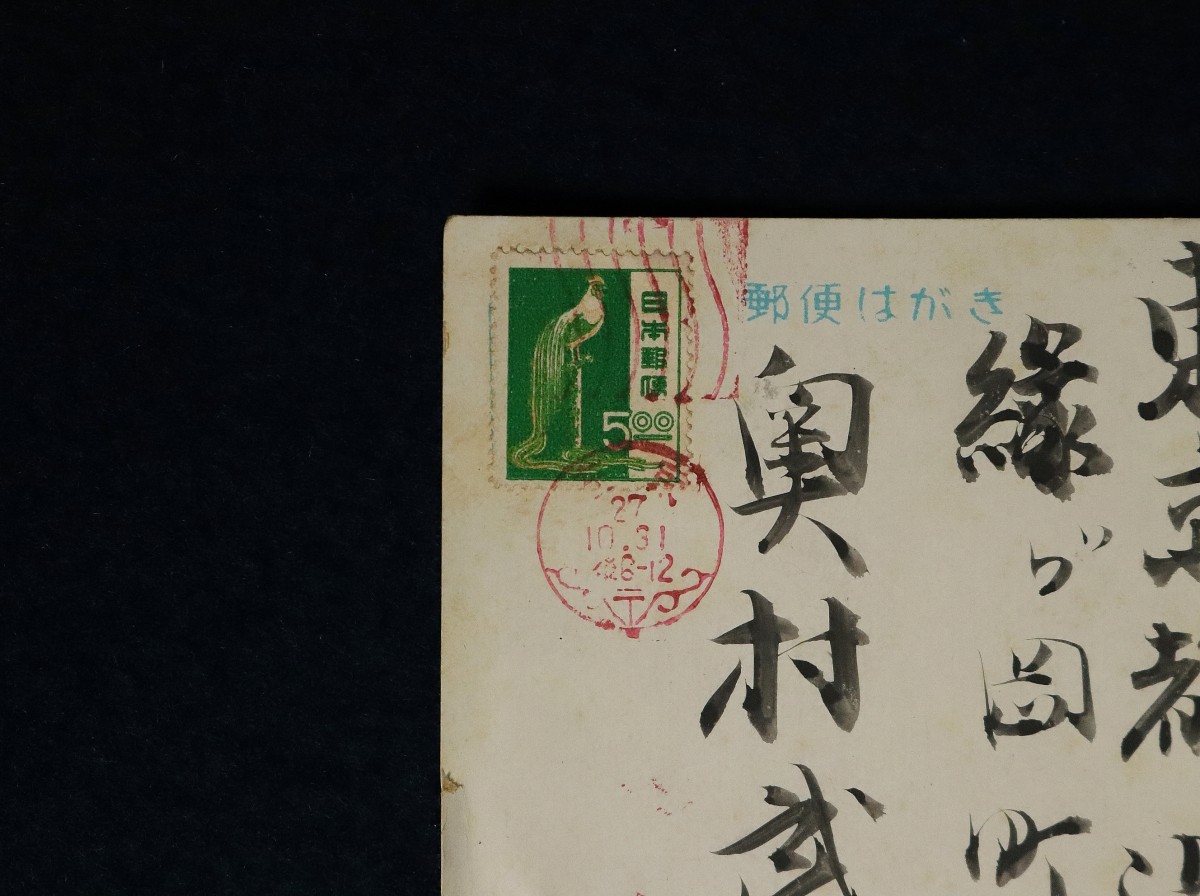 日本郵便
5.00
27
10.31
8-12
郵便はがき
東京都
緑ガ岡町
奥村武